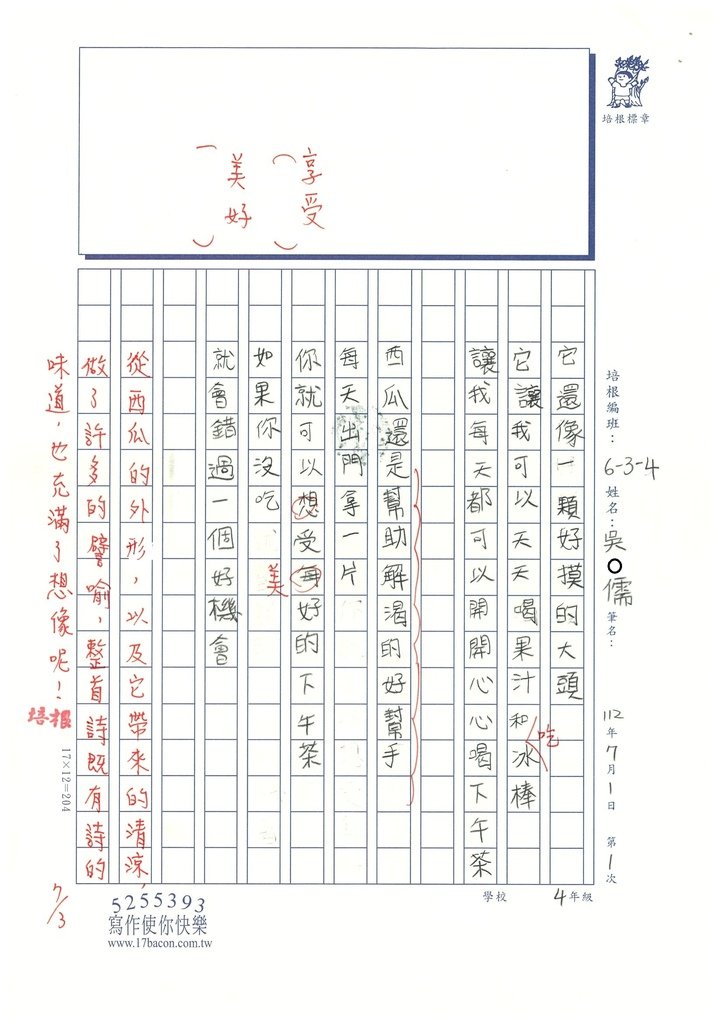 培根標章
享受
（　　）
美好
（　　）
培根編班：6-3-4 姓名：吳○儒 筆名： 112年7月1日 第1次
它還像一顆好摸的大頭
它讓我可以天天喝果汁和冰棒
吃
讓我每天都可以開開心心喝下午茶
西瓜還是幫助解渴的好幫手
每天出門拿一片
你就可以想受每好的下午茶
美
如果你沒吃
就會錯過一個好機會
從西瓜的外形，以及它帶來的清涼，
做了許多的譬喻，整首詩既有詩的
味道，也充滿了想像呢！
培根
17×12=204
7/3
學校 4年級
5255393
寫作使你快樂
www.17bacon.com.tw